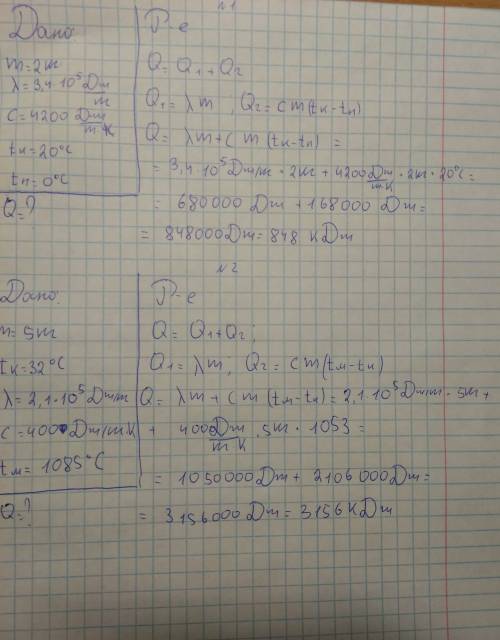 N1
Дано
m=2кг
λ=3,4·10⁵ Дж/кг
C=4200 Дж/кг К
tк=20°C
tп=0°C
Q=?
Р-е
Q=Q₁+Q₂
Q₁=λm, Q₂=cm(tк-tп)
Q=λm+cm(tк-tп)=
=3,4·10⁵Дж/кг·2кг+4200Дж/кг К·2кг·20°C=
=680000 Дж+168000 Дж=
=848000Дж=848 кДж
N2
Дано:
m=5кг
tк=32°C
λ=2,1·10⁵Дж/кг
C=400Дж/кгК
tм=1085°C
Q=?
Р-е
Q=Q₁+Q₂;
Q₁=λm; Q₂=cm(tм-tк)
Q=λm+cm(tм-tк)=2,1·10⁵Дж/кг·5кг+
+400Дж/кг К·5кг·1053=
=1050000Дж+2106000Дж=
=3156000Дж=3156КДж